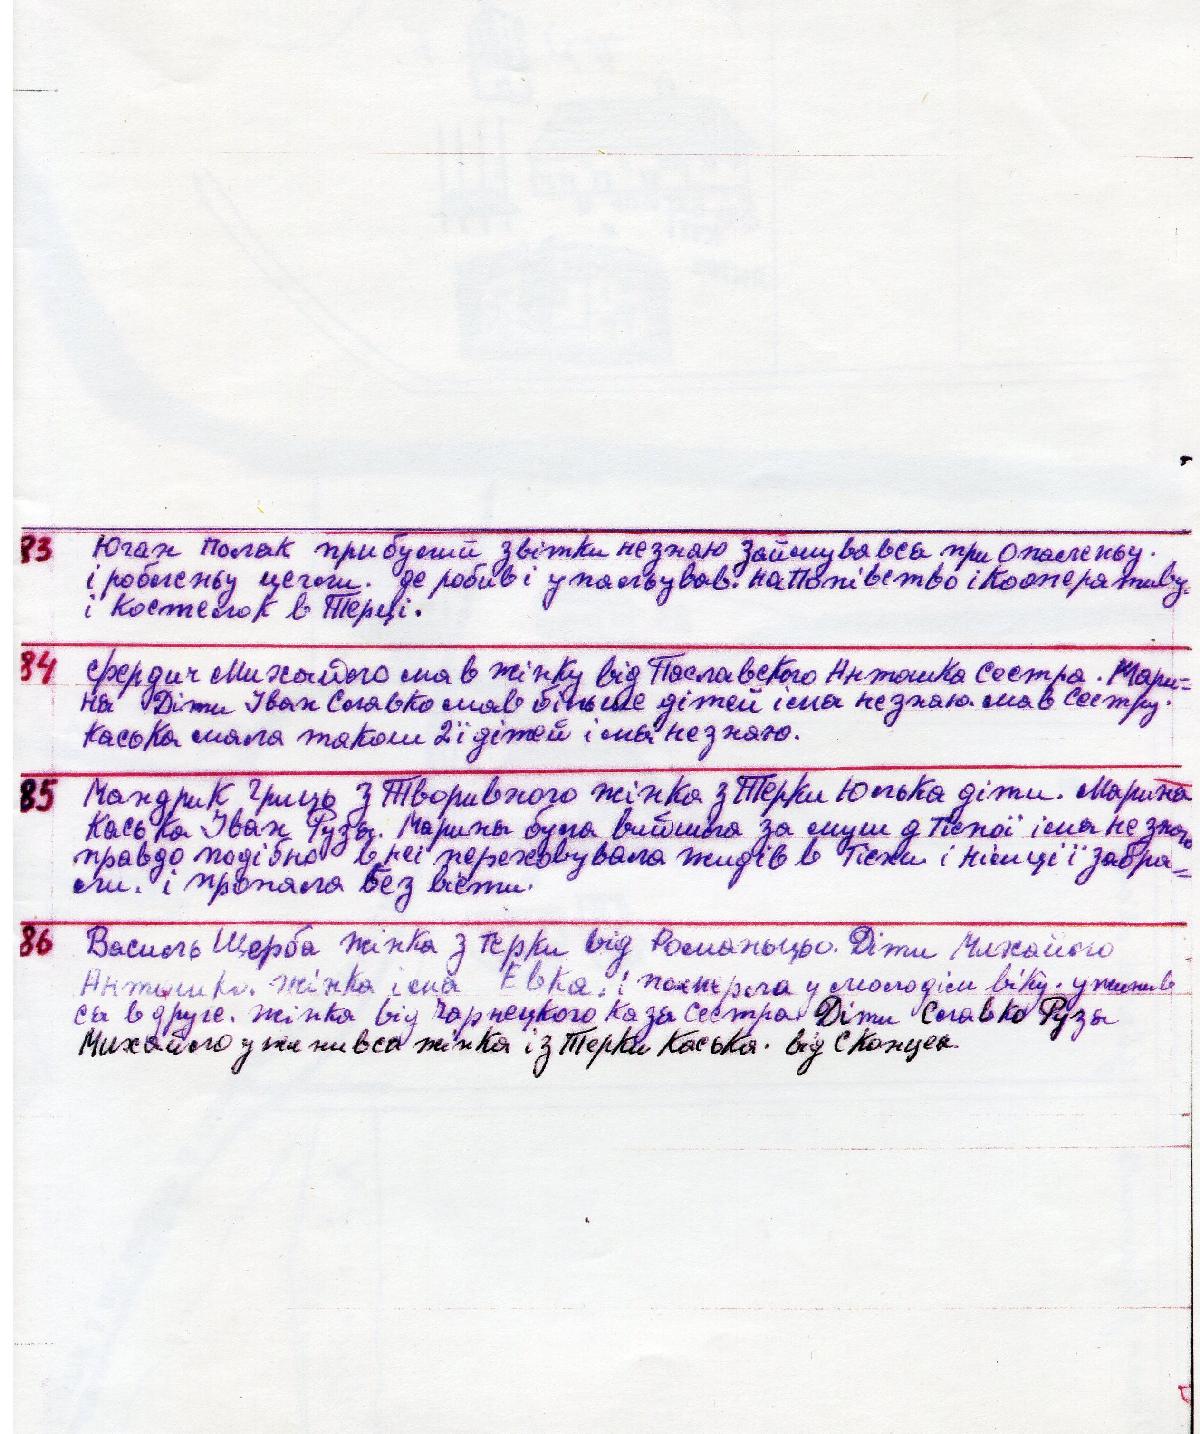 83 Юган Поляк прибувший звітки незнаю займував вся при Опаленьу.
і робленьу цегли. де робив і упальував. на Попівство і Кооперативу.
і Костелок в Терці.
84 Фердич Михайло мав жінку від Пославского Антошка Сестра. Мари=
на Діти Іван Славко мав більше дітей імя незнаю. мав Сестру.
Каська мала також 2ї дітей імя незнаю.
85 Мандрик Гриць З Творивного жінка з Терки Юлька діти. Марина
Каська Іван Рузя. Марина була вийшла за муш д Тісної імя незнаю
правдо подібно в неї переховувала жидів в Тісни і німці ї забра=
ли. і пропала без вісти.
86 Василь Щерба жінка З терки від Романьцьо. Діти Михайло
Антошко. жінка імя Евка. і померла у молодім віку. ужинив
ся вдруге. жінка від Чарнецкого Каза Сестра. Діти Славко Рузя
Михайло ужинився жінка із Терки Каська. від Сконцея.